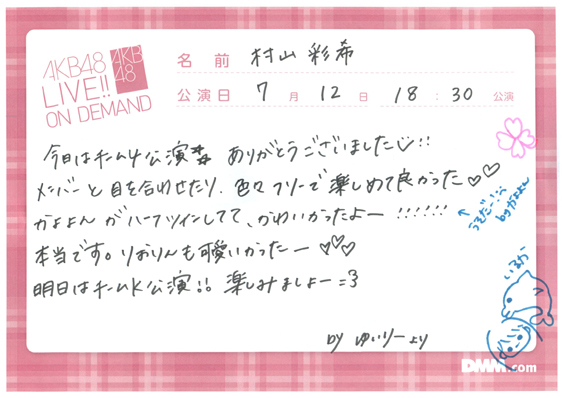 AKB48
LIVE!!
ON DEMAND
AKB
48
名前 村山彩希
公演日 7月12日 18:30公演
今日はチーム4公演 ありがとうございました!!
メンバーと目を合わせたり、色々フリーで楽しめて良かった♡♡
かよよんがハーフツインしてて、かわいかったよー!!!!!!
←うそだー!!
byかよよん
本当です。りおりんも可愛いかったー♡♡♡
明日はチームK公演!! 楽しみましょー=3
いるか
by ゆいりーより
DMM.com